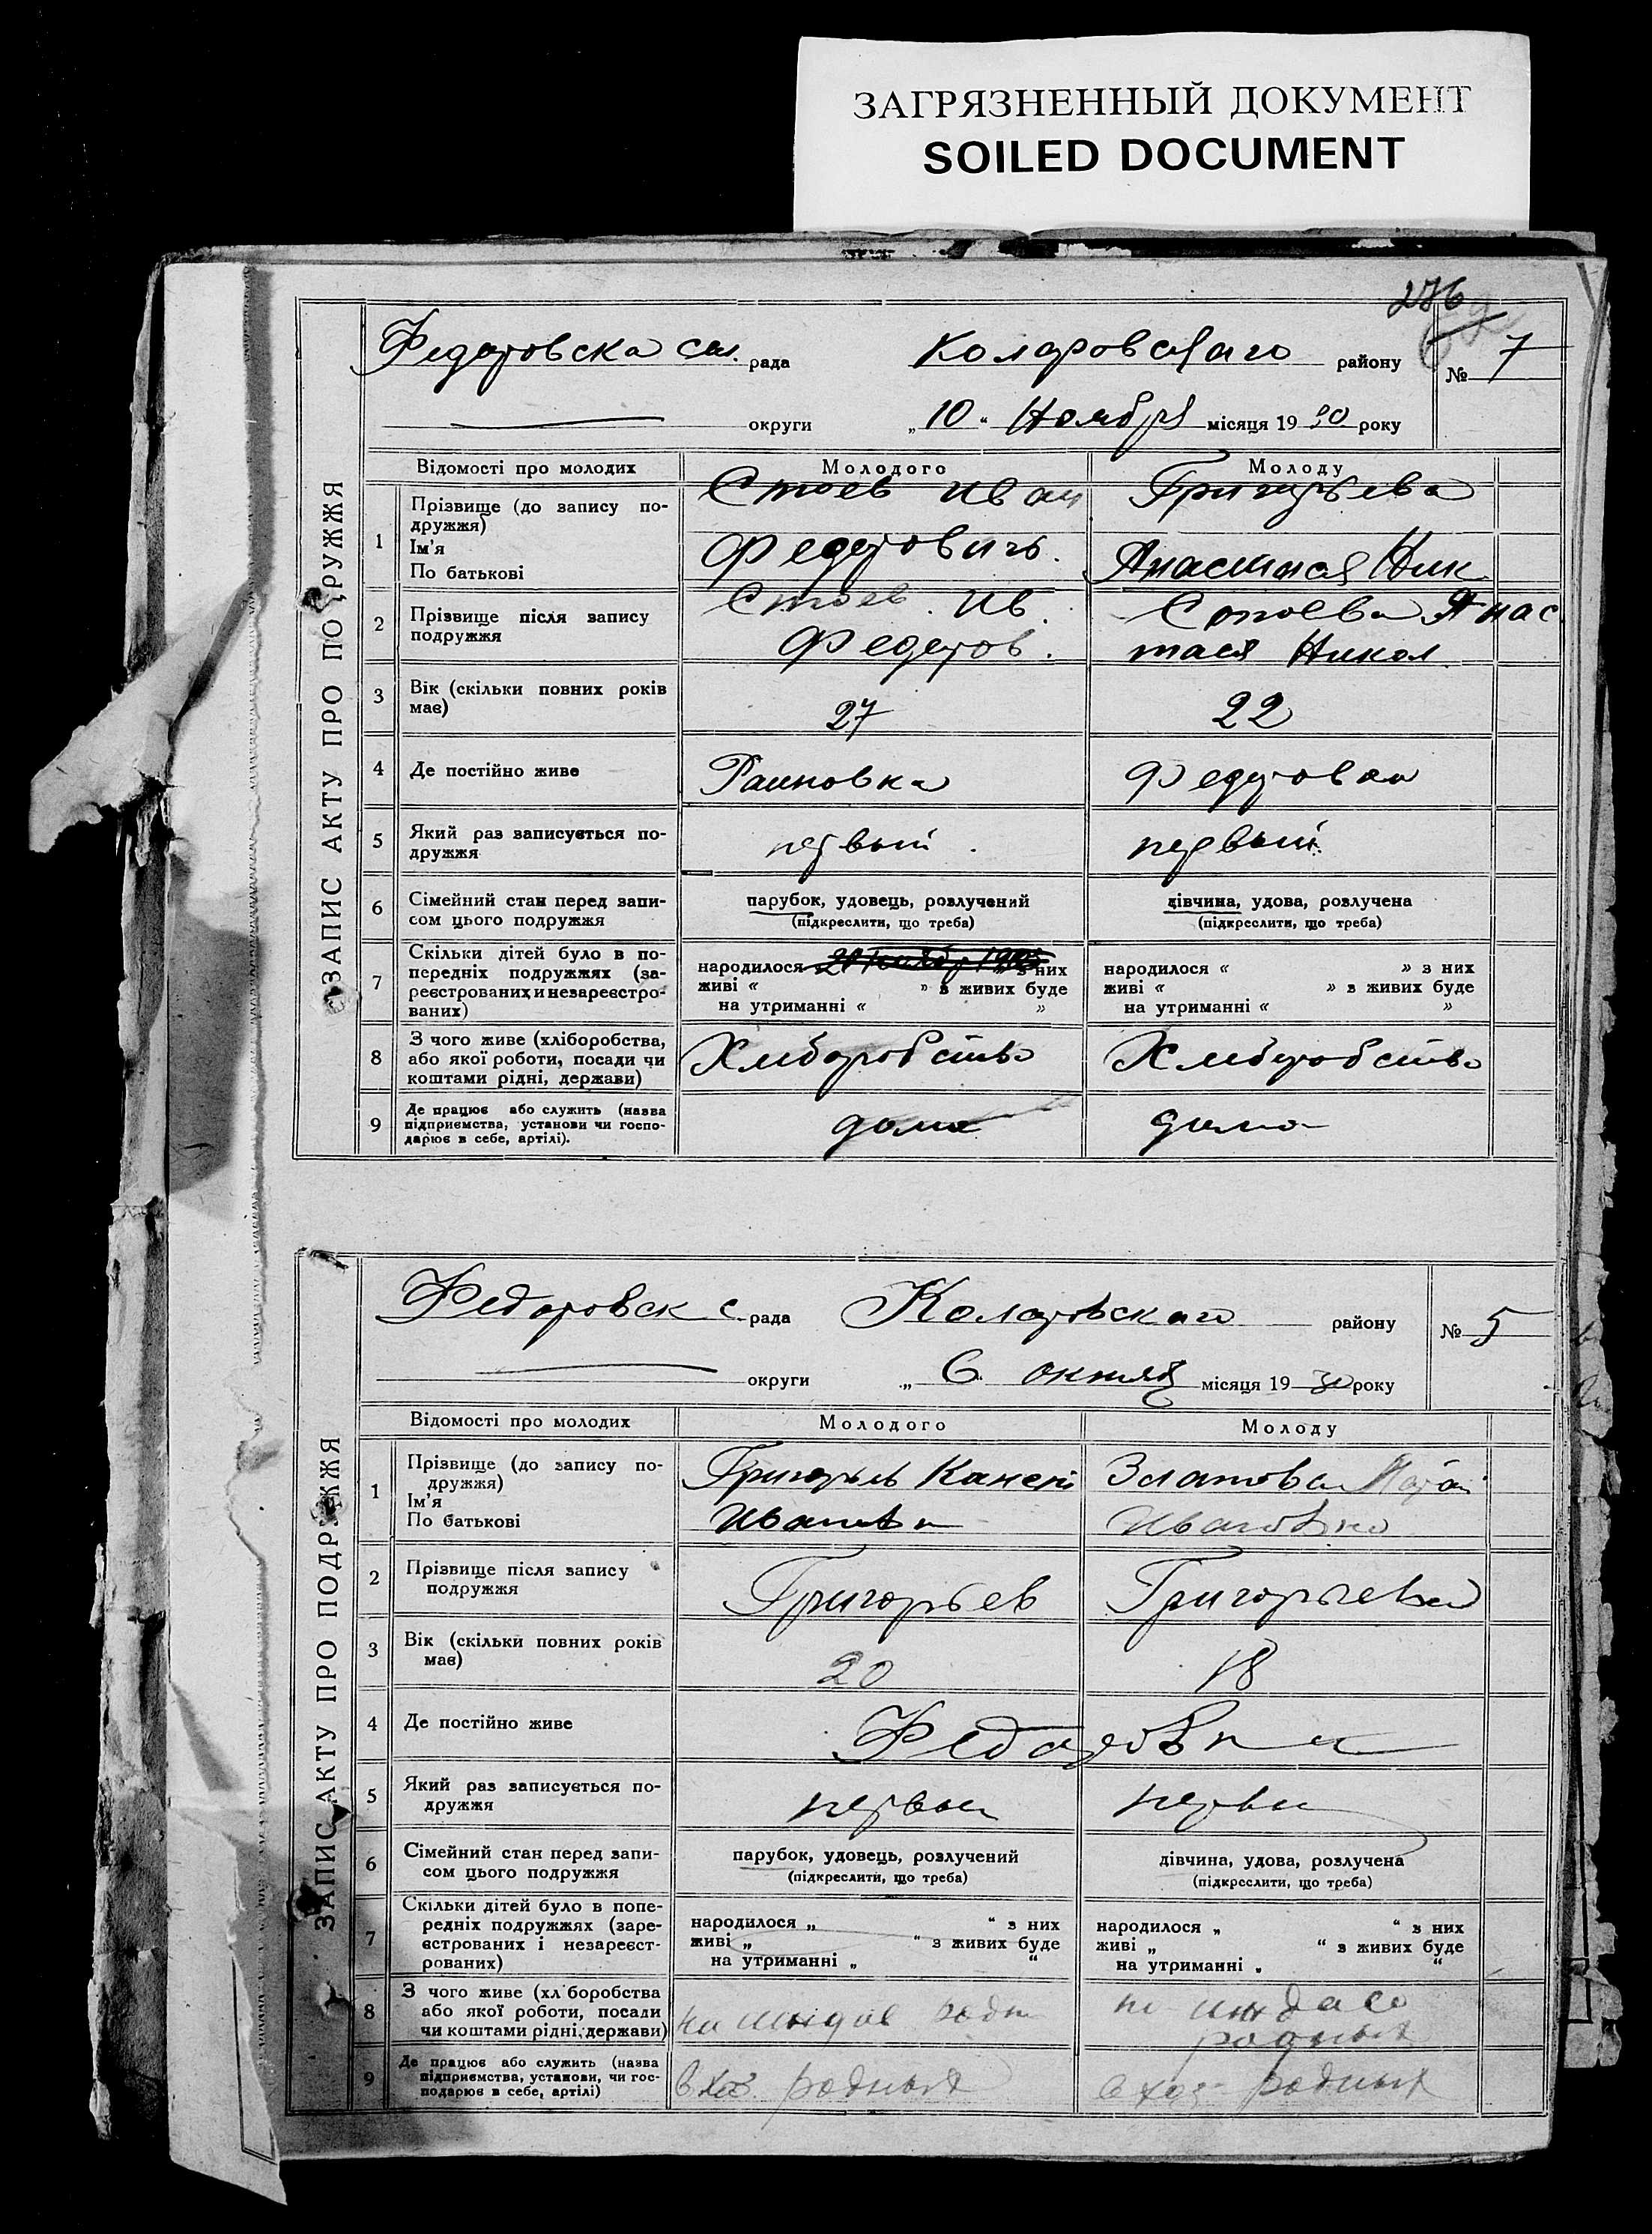 ЗАГРЯЗНЕННЫЙ ДОКУМЕНТ
SOILED DOCUMENT
276
ЗАПИС АКТУ ПРО ПОДРУЖЖЯ
Федоровска сел. рада Коларовского району № 7
округи „ 10 “ Ноября місяця 19 30 року
Відомості про молодих Молодого Молоду
1 Прізвище (до запису по-
дружжя)
Ім'я
По батькові
Стоев Иван
Федорович.
Григорьева
Анастасия Ник
2 Прізвище після запису
подружжя
Стоев. Ив.
Федоров.
Стоева Анас
тасия Никол.
3 Вік (скільки повних років
має)
27 22
4 Де постійно живе Раиновка Федоровка
5 Який раз записується по-
дружжя
первый. первый.
6 Сімейний стан перед запи-
сом цього подружжя
парубок, удовець, розлучений
(підкреслити, що треба)
дівчина, удова, розлучена
(підкреслити, що треба)
7 Скільки дітей було в по-
передніх подружжях (за-
реєстрованих и незареєстро-
ваних)
народилося » з них
живі « » з живих буде
на утриманні « »
народилося « » з них
живі « » з живих буде
на утриманні « »
8 З чого живе (хліборобства,
або якої роботи, посади чи
коштами рідні, держави)
Хлиборобство Хлиборобство
9 Де працює або служить (назва
підприємства, установи чи госпо-
дарює в себе, артілі).
дома дома
ЗАПИС АКТУ ПРО ПОДРУЖЖЯ
Федоровск с. рада Коларовского району № 5
округи „ 6. октяб місяця 19 30 року
Відомості про молодих Молодого Молоду
1 Прізвище (до запису по-
дружжя)
Ім'я
По батькові
Григорьев
Иванови
Златова
Ивановна
2 Прізвище після запису
подружжя
Григорьев Григорьева
3 Вік (скільки повних років
має)
20 18
4 Де постійно живе Федоровка
5 Який раз записується по-
дружжя
первы первы
6 Сімейний стан перед запи-
сом цього подружжя
парубок, удовець, розлучений
(підкреслити, що треба)
дівчина, удова, розлучена
(підкреслити, що треба)
7 Скільки дітей було в попе-
редніх подружжях (заре-
єстрованих і незареєст-
рованих)
народилося „ “ з них
живі „ “ з живих буде
на утриманні „ “
народилося „ “ з них
живі „ “ з живих буде
на утриманні „ “
8 З чого живе (хліборобства
або якої роботи, посади
чи коштами рідні, держави)
на иждив родн
родных
9 Де працює або служить (назва
підприємства, установи, чи гос-
подарює в себе, артілі)
в хоз. родных в хоз- родных